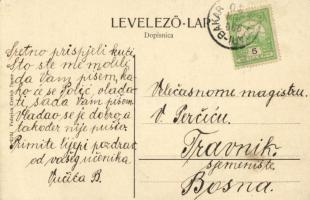 LEVELEZŐ-LAP
Dopisnica
BAKAR
5
Sretno prispjeli kući
Što ste me molili
da Vam pišem, ka-
ko će se Polić vlada-
ti, sada Vam pišem
Vladao se je dobro a
također nije pušio.
Primite lijepi pozdrav
od vašeg učenika
B.
Veličasnome magistru
V.
Travnik
sjemenište
Bosna.